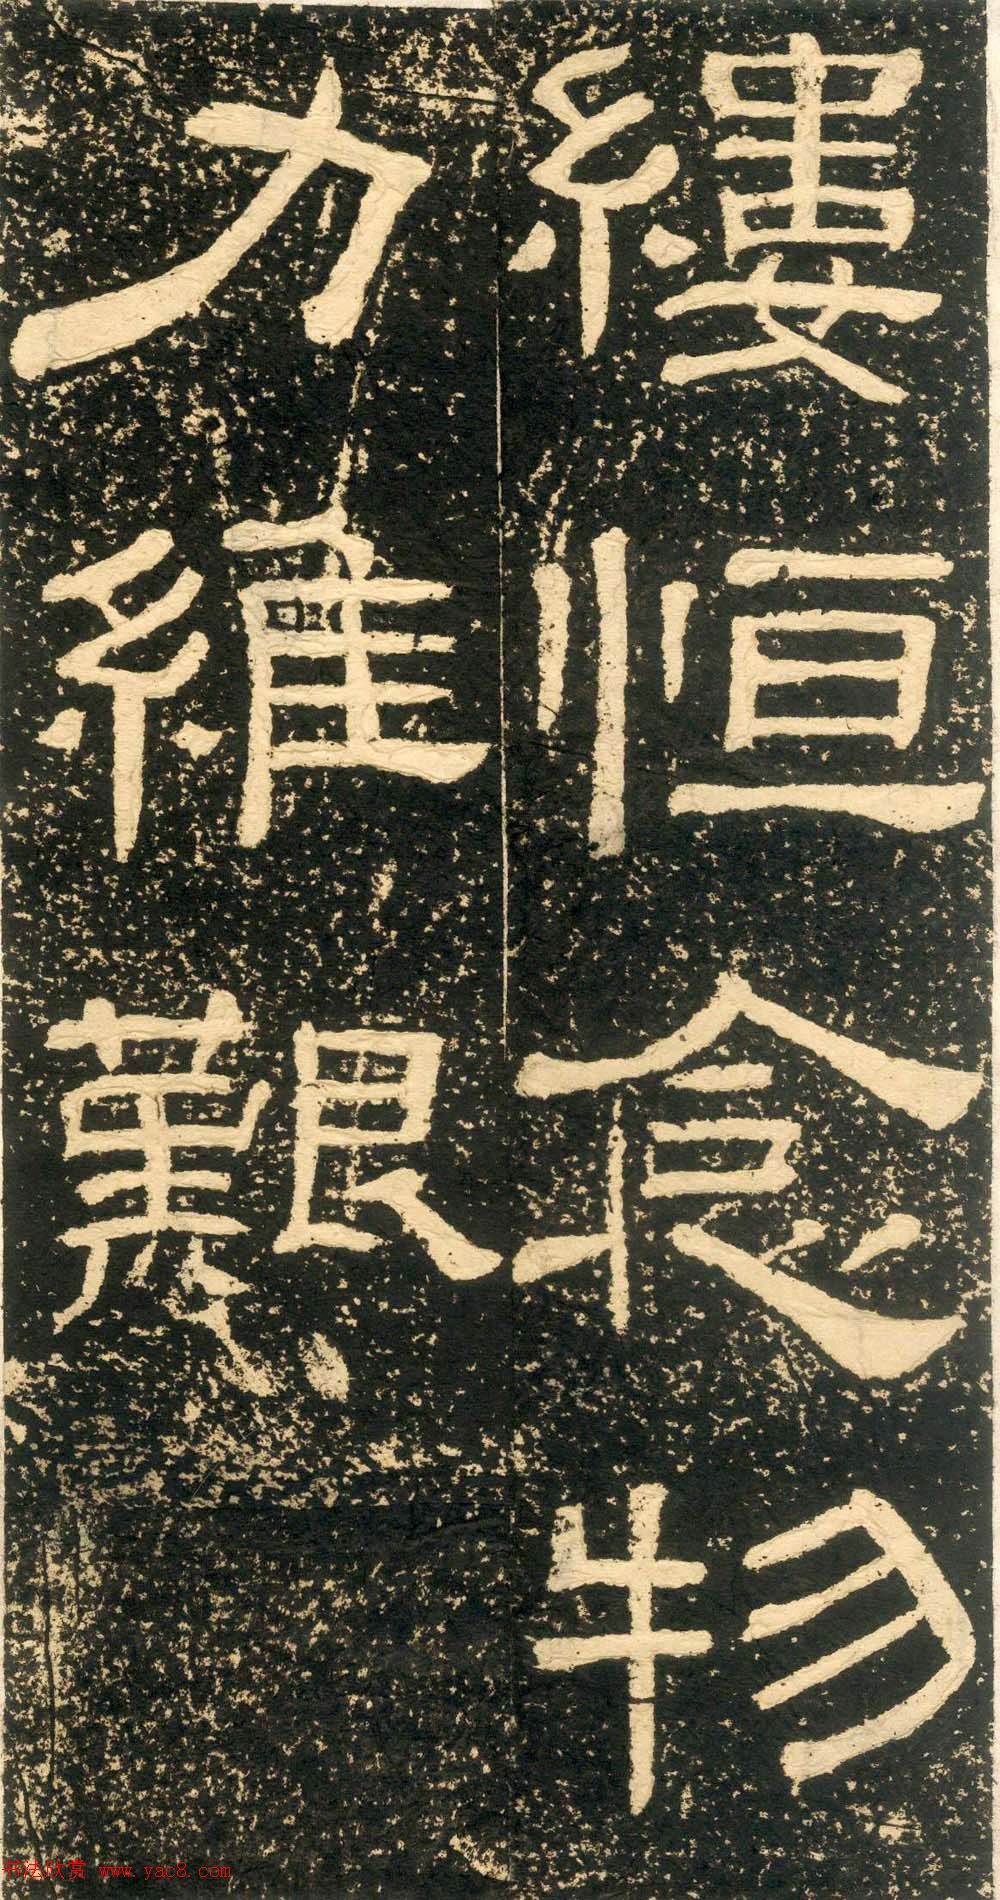 縷恒念物
力維艱
书法欣赏 www.yac8.com